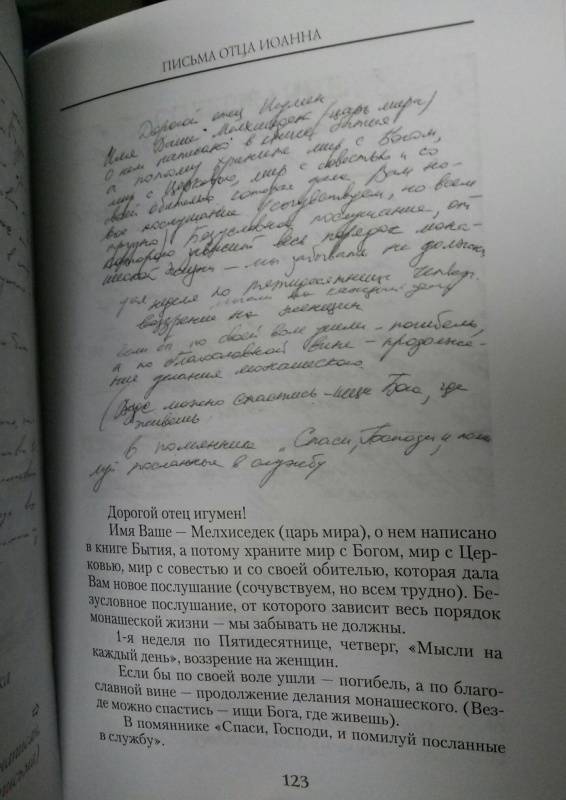 ПИСЬМА ОТЦА ИОАННА
Дорогой отец Игумен
Имя Ваше Мелхиседек (царь мира)
о нем написано в книге Бытия
а потому храните мир с Богом,
мир с Церковью, мир с совестью и со
своей обителью которая дала Вам но-
вое послушание (сочувствуем, но всем
трудно) Безусловное послушание, от
которого зависит весь порядок мона-
шеской жизни – мы забывать не должны
1ая неделя по пятидесятнице четверг
мысли на каждый день
воззрение на женщин
если бы по своей воле ушли – погибель,
а по благословной вине – продолже-
ние делания монашеского.
(Везде можно спастись – ищи Бога, где
живешь
В помянника „Спаси, Господи, и поми
луй посланные в службу
Дорогой отец игумен!
Имя Ваше – Мелхиседек (царь мира), о нем написано
в книге Бытия, а потому храните мир с Богом, мир с Цер-
ковью, мир с совестью и со своей обителью, которая дала
Вам новое послушание (сочувствуем, но всем трудно). Бе-
зусловное послушание, от которого зависит весь порядок
монашеской жизни – мы забывать не должны.
1-я неделя по Пятидесятнице, четверг, «Мысли на
каждый день», воззрение на женщин.
Если бы по своей воле ушли – погибель, а по благо-
славной вине – продолжение делания монашеского. (Вез-
де можно спастись – ищи Бога, где живешь).
В помяннике «Спаси, Господи, и помилуй посланные
в службу».
123